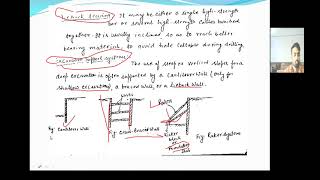 Tieback tension: It may be either a single high-strength
bar or several high-strength cables bunched
together. It is usually inclined so as to reach better
bearing material, to avoid hole collapse during drilling.
Excavation support systems: The use of steeper vertical slopes for a
deep excavation is often supported by a cantilever wall (only for
shallow excavation), a braced wall, or a tieback wall.
struts
Rakers
Raker
block
or
Foundation
slab
Fig: Cantilever Wall
Fig: Cross-braced Wall
Fig: Raker System